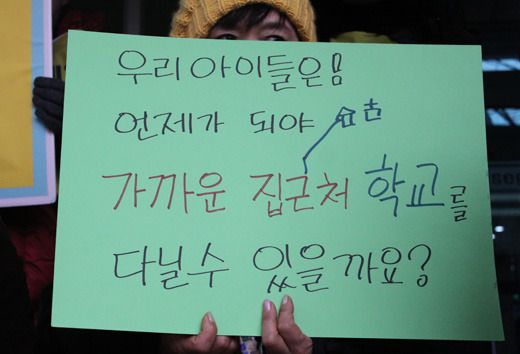 우리 아이들은!!
언제가 되야
가까운 집근처 학교를
다닐수 있을까요?